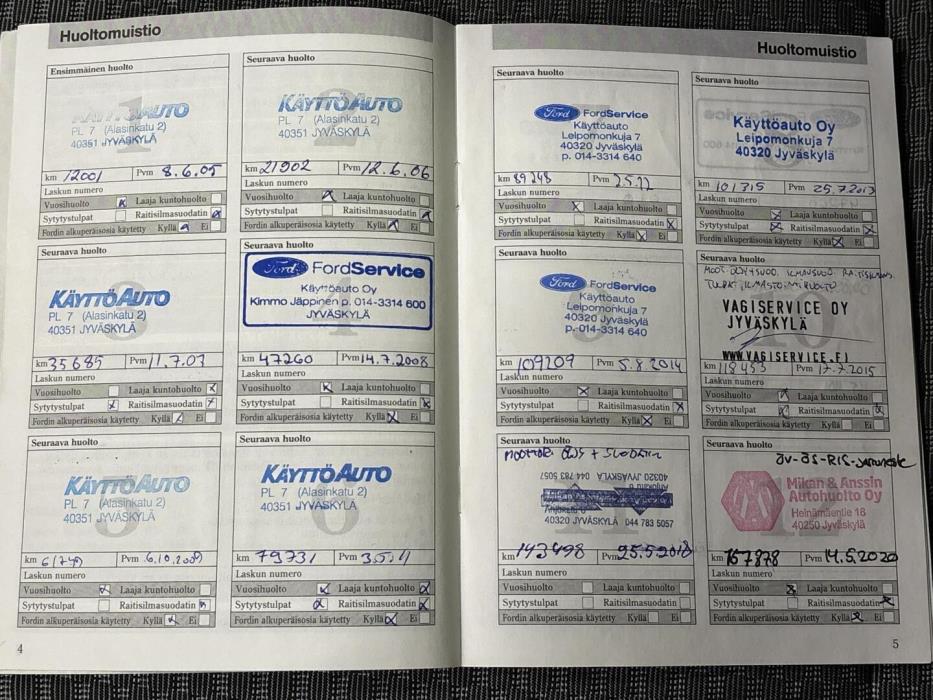 Huoltomuistio
Ensimmäinen huolto
KÄYTTÖAUTO
PL 7 (Alasinkatu 2)
40351 JYVÄSKYLÄ
km 12001 Pvm 8.6.05
Laskun numero
Vuosihuolto Laaja kuntohuolto
Sytytystulpat Raitisilmasuodatin
Fordin alkuperäisosia käytetty Kyllä Ei
Seuraava huolto
KÄYTTÖAUTO
PL 7 (Alasinkatu 2)
40351 JYVÄSKYLÄ
km 21902 Pvm 12.6.06
Laskun numero
Vuosihuolto Laaja kuntohuolto
Sytytystulpat Raitisilmasuodatin
Fordin alkuperäisosia käytetty Kyllä Ei
Seuraava huolto
KÄYTTÖAUTO
PL 7 (Alasinkatu 2)
40351 JYVÄSKYLÄ
km 35685 Pvm 11.7.07
Laskun numero
Vuosihuolto Laaja kuntohuolto
Sytytystulpat Raitisilmasuodatin
Fordin alkuperäisosia käytetty Kyllä Ei
Seuraava huolto
Ford FordService
Käyttöauto Oy
Kimmo Jäppinen p. 014-3314 600
JYVÄSKYLÄ
km 47260 Pvm 14.7.2008
Laskun numero
Vuosihuolto Laaja kuntohuolto
Sytytystulpat Raitisilmasuodatin
Fordin alkuperäisosia käytetty Kyllä Ei
Seuraava huolto
KÄYTTÖAUTO
PL 7 (Alasinkatu 2)
40351 JYVÄSKYLÄ
km Pvm
Laskun numero
Vuosihuolto Laaja kuntohuolto
Sytytystulpat Raitisilmasuodatin
Fordin alkuperäisosia käytetty Kyllä Ei
Seuraava huolto
KÄYTTÖAUTO
PL 7 (Alasinkatu 2)
40351 JYVÄSKYLÄ
km 79731 Pvm 3.5.11
Laskun numero
Vuosihuolto Laaja kuntohuolto
Sytytystulpat Raitisilmasuodatin
Fordin alkuperäisosia käytetty Kyllä Ei
4
Huoltomuistio
Seuraava huolto
Ford FordService
Käyttöauto
Leipomonkuja 7
40320 Jyväskylä
p. 014-3314 640
km 89248 Pvm
Laskun numero
Vuosihuolto Laaja kuntohuolto
Sytytystulpat Raitisilmasuodatin
Fordin alkuperäisosia käytetty Kyllä Ei
Seuraava huolto
Käyttöauto Oy
Leipomonkuja 7
40320 Jyväskylä
km 101315 Pvm 25.7.2013
Laskun numero
Vuosihuolto Laaja kuntohuolto
Sytytystulpat Raitisilmasuodatin
Fordin alkuperäisosia käytetty Kyllä Ei
Seuraava huolto
Ford FordService
Käyttöauto
Leipomonkuja 7
40320 Jyväskylä
p. 014-3314 640
km 109209 Pvm 5.8.2014
Laskun numero
Vuosihuolto Laaja kuntohuolto
Sytytystulpat Raitisilmasuodatin
Fordin alkuperäisosia käytetty Kyllä Ei
VAGISERVICE OY
JYVÄSKYLÄ
WWW.VAGISERVICE.FI
km 118453 Pvm 17.7.2015
Laskun numero
Vuosihuolto Laaja kuntohuolto
Sytytystulpat Raitisilmasuodatin
Fordin alkuperäisosia käytetty Kyllä Ei
Seuraava huolto
40320 JYVÄSKYLÄ 044 783 5057
40320 JYVÄSKYLÄ 044 783 5057
km 143498 Pvm 25.5.2018
Laskun numero
Vuosihuolto Laaja kuntohuolto
Sytytystulpat Raitisilmasuodatin
Fordin alkuperäisosia käytetty Kyllä Ei
Seuraava huolto
Mikan & Anssin
Autohuolto Oy
Heinämäentie 18
40250 Jyväskylä
km 167878 Pvm 14.5.2020
Laskun numero
Vuosihuolto Laaja kuntohuolto
Sytytystulpat Raitisilmasuodatin
Fordin alkuperäisosia käytetty Kyllä Ei
5